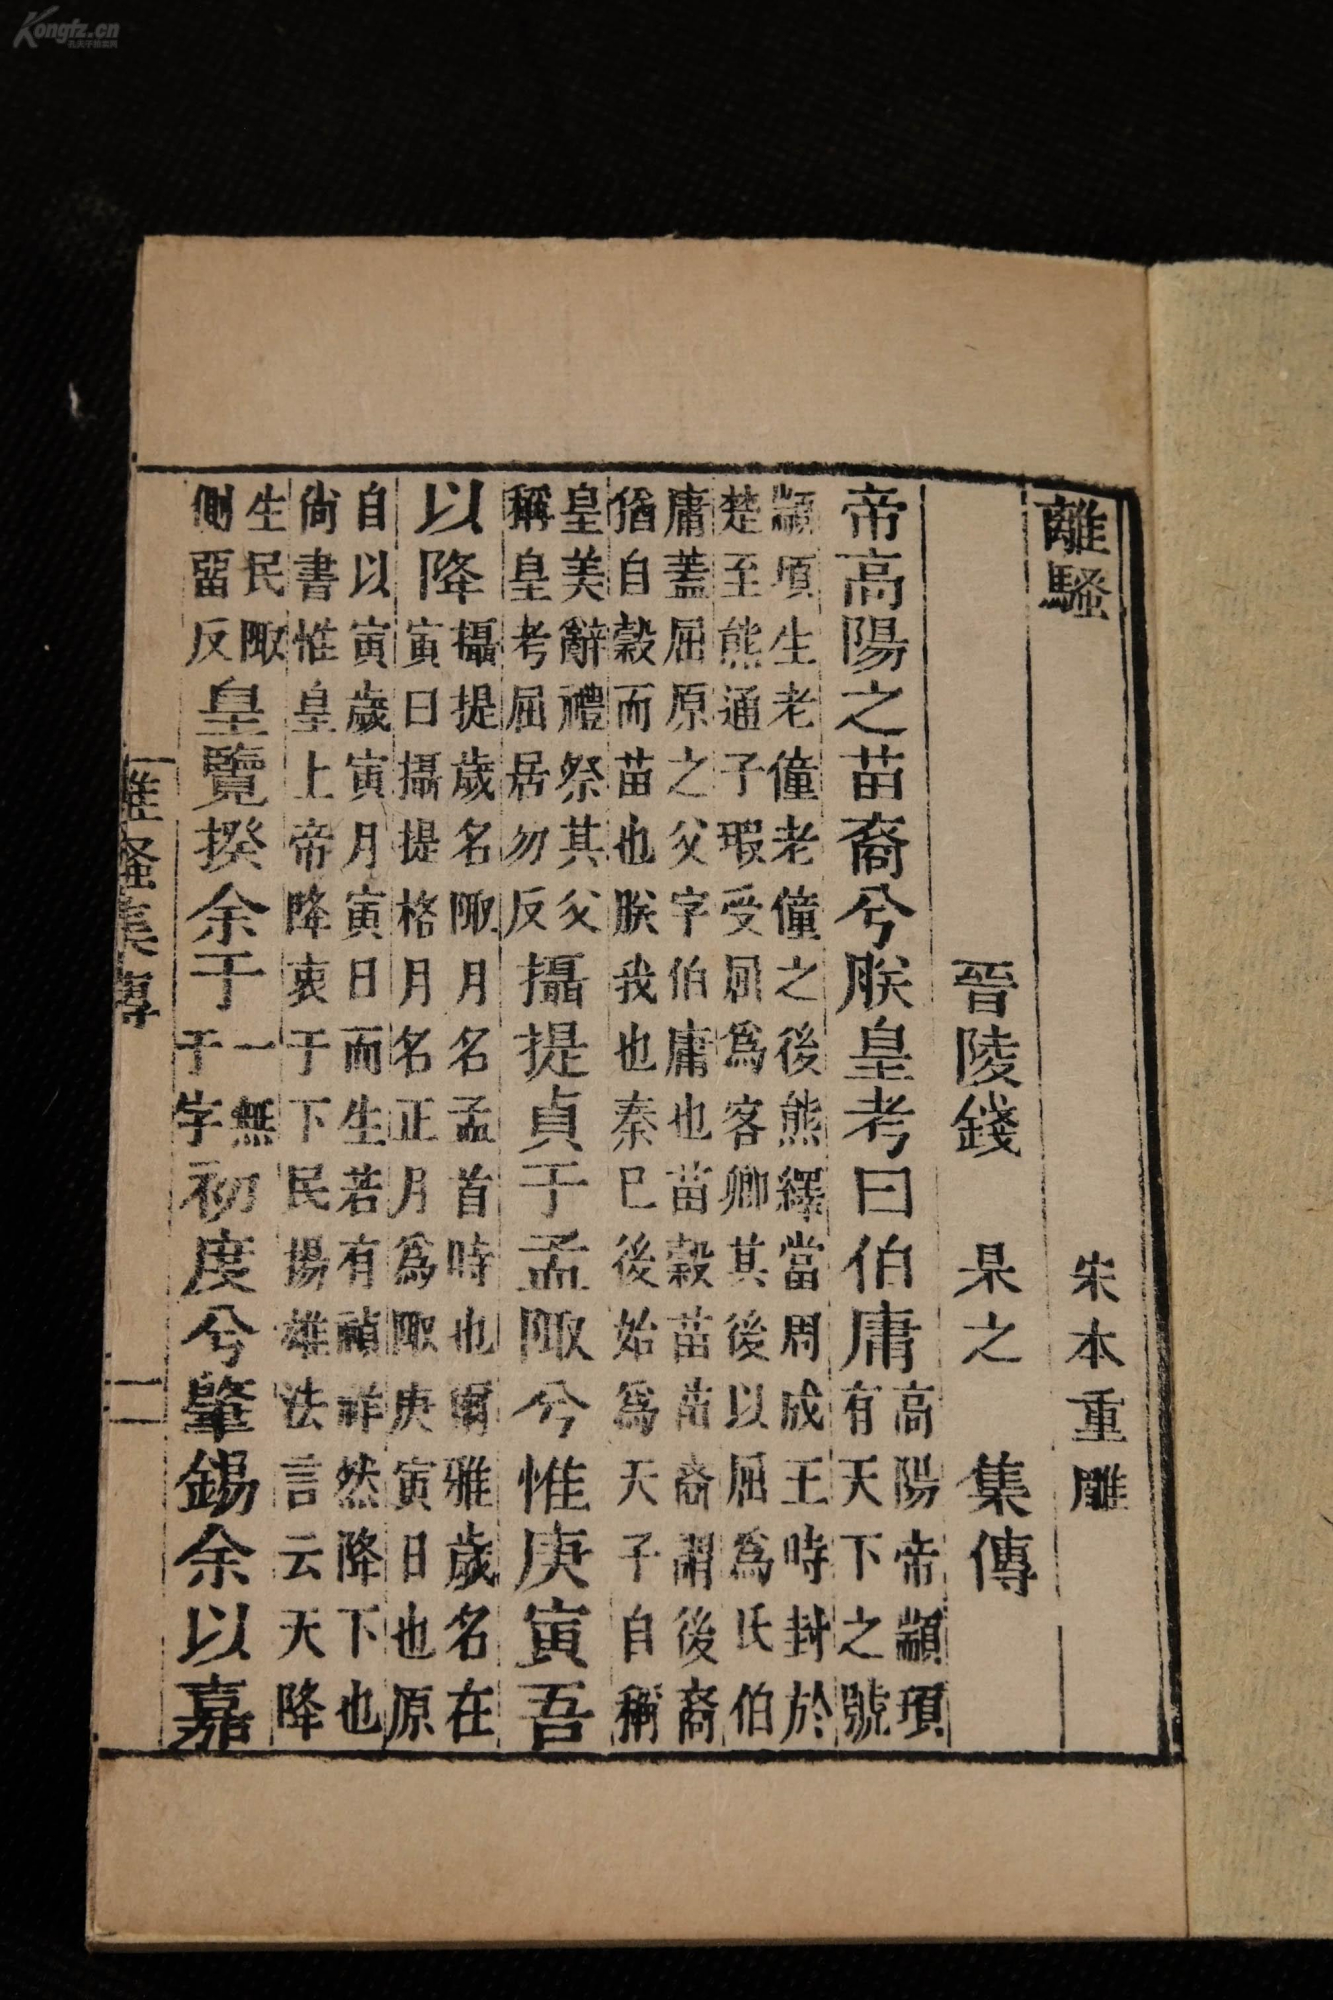 Kongfz.cn
孔夫子旧书网
離騷
宋本重雕
晉陵錢 杲之 集傳
帝高陽之苗裔兮朕皇考曰伯庸
高陽帝顓頊
有天下之號
顓頊生老僮老僮之後熊繹當周成王時封於
楚至熊通子瑕受屈爲客卿其後以屈爲氏伯
庸蓋屈原之父字伯庸也苗穀苗苗裔謂後裔
猶自穀而苗也朕我也秦已後始爲天子自稱
皇美辭禮祭其父
稱皇考屈居勿反
攝提貞于孟陬兮惟庚寅吾
以降
攝提歲名陬月名孟首時也爾雅歲名在
寅曰攝提格月名正月爲陬庚寅日也原
自以寅歲寅月寅日而生若有禎祥然降下也
尙書惟皇上帝降衷于下民揚雄法言云天降
生民陬
側畱反
皇覽揆余于
一無
于字
初度兮肇錫余以嘉
離騷集傳
一